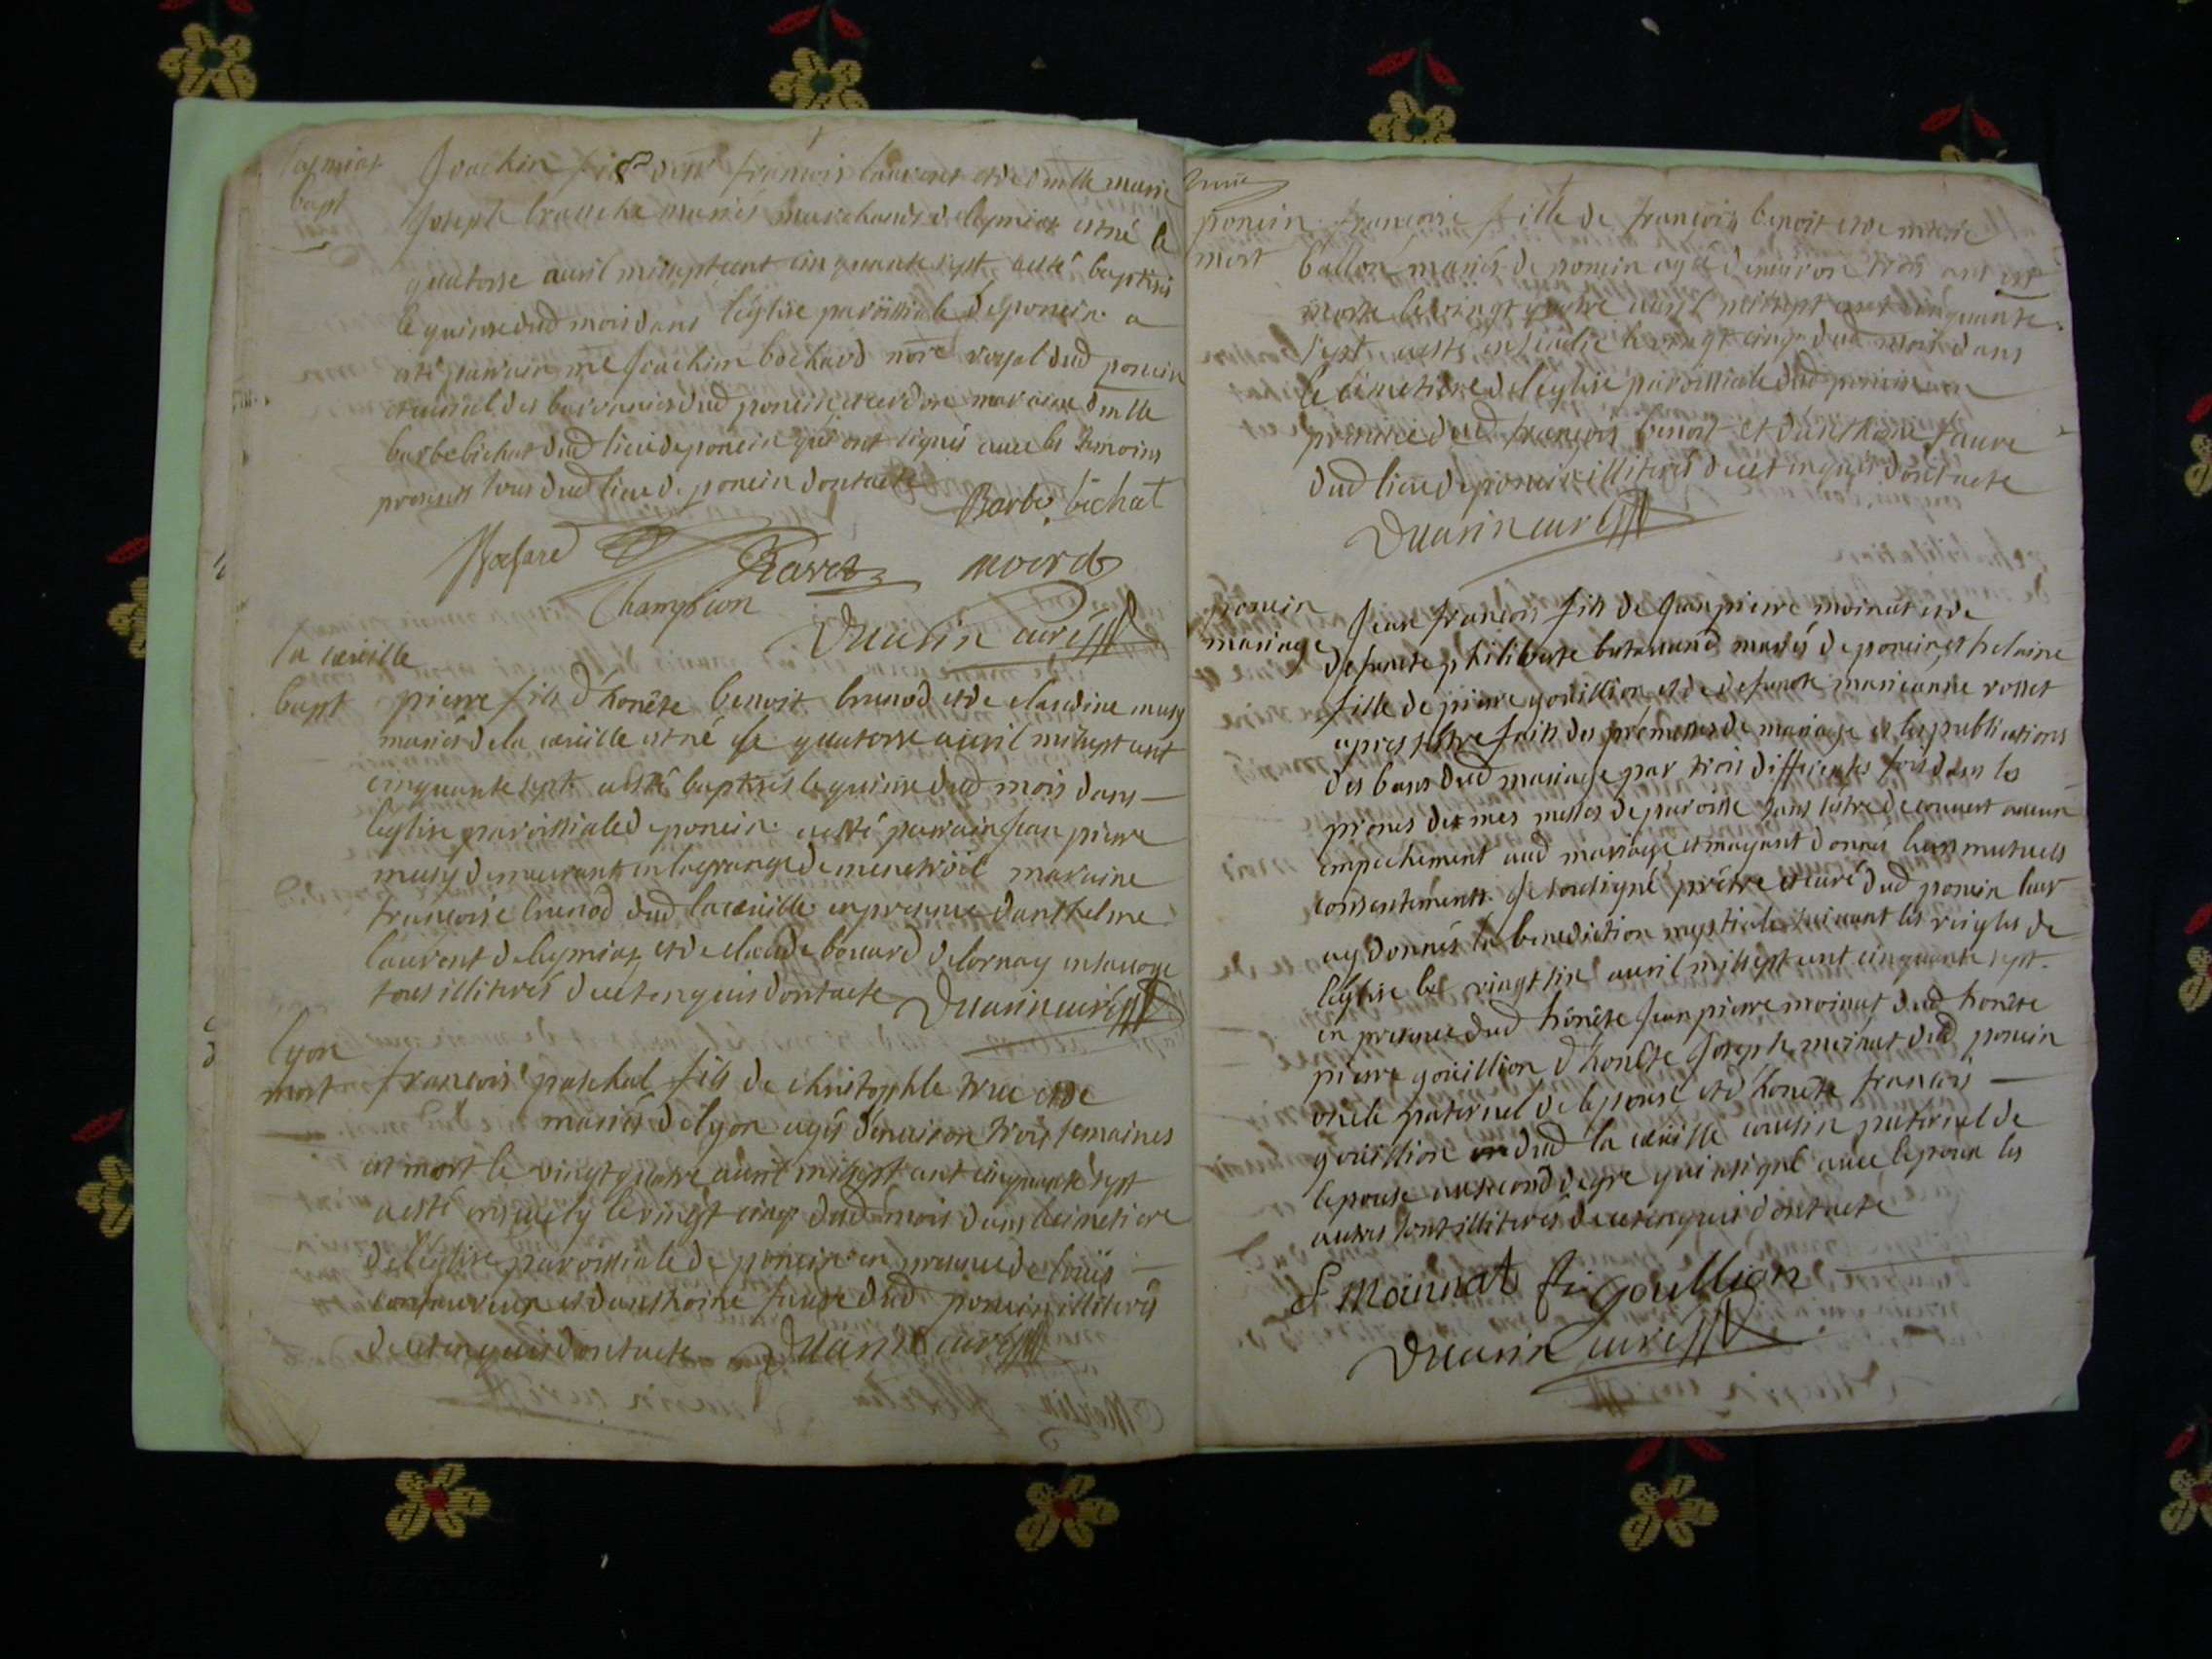 Leymiat
bapt
Joachin fils de sr françois laurent et de dmlle marie
Joseph brasche mariés marchands de leymiat est né le
quatorse avril mil sept cent cinquante sept a esté baptisés
le quinse dud mois dans l'église paroissiale de poncin a
été parrain me Joachim bochard nore royal dud poncin
des baronnies dud poncin et cerdon maraine dmlle
barbe bichat dud lieu de poncin qui ont signés avec les temoins
presents tous dud lieu de poncin dont acte
Barbe bichat
Ravet
Champion
Duarin curé
la cueille
bapt
pierre fils d'honête benoit brunod et de claudine musy
mariés de la cueille est né le quatorse avril mil sept cent
cinquante sept a esté baptisés le quinse dud mois dans
l'eglise paroissiale de poncin a esté parrain Jean pierre
musy demeurant en la grange de menetruil maraine
francoise brunod dud la cueille en presence d'anthelme
laurent de leymiat et de claude bouvard de lornay en savoye
tous illiterés de ce enquis dont acte Duarin curé
lyon
mort
francois paschal fils de christophle truc et de
mariés de lyon agés d'environ trois semaines
est mort le vingt quatre avril mil sept cent cinquante sept
a esté ensevely le vingt cinq dud mois dans le cimetiere
de l'eglise paroissiale de poncin en presence de louis
et d'anthoine faure dud poncin illiterés
de ce enquis dont acte Duarin curé
poncin
mort
francoise fille de francois benoit et de marie
ballon mariés de poncin agée d'environ trois ans est
morte le vingt quatre avril mil sept cent cinquante
sept a esté ensevelie le vingt cinq dud mois dans
le cimetiere de l'eglise paroissiale dud poncin en
presence dud françois benoit et d'anthoine faure
dud lieu de poncin illiterés de ce enquis dont acte
Duarin curé
poncin
mariage
Jean francois fils de Jean pierre moinat et de
defuncte philiberte mariés de poncin et helaine
fille de pierre gouillion et de defuncte marianne rosset
apres s'estre faits des promesses de mariage et les publications
des bans dud mariage par trois differentes fois dans les
prones de mes messes de paroisse sans s'estre decouvert aucun
empechement aud mariage et m'ayant donnés leurs mutuels
consentements Je soussigné prêtre et curé dud poncin leur
ay donnés la benediction nuptiale suivant les reigles de
l'eglise le vingt six avril mil sept cent cinquante sept
en presence dud honête Jean pierre moinat dud honête
pierre gouillion d'honête Joseph moinat dud poncin
oncle paternel de lepouse et d'honête francois
gouillion dud la cueille cousin paternel de
lepouse au second degre qui a signé avec lepoux les
autres sont illiterés de ce enquis dont acte
f moinat fr goullion
Duarin curé